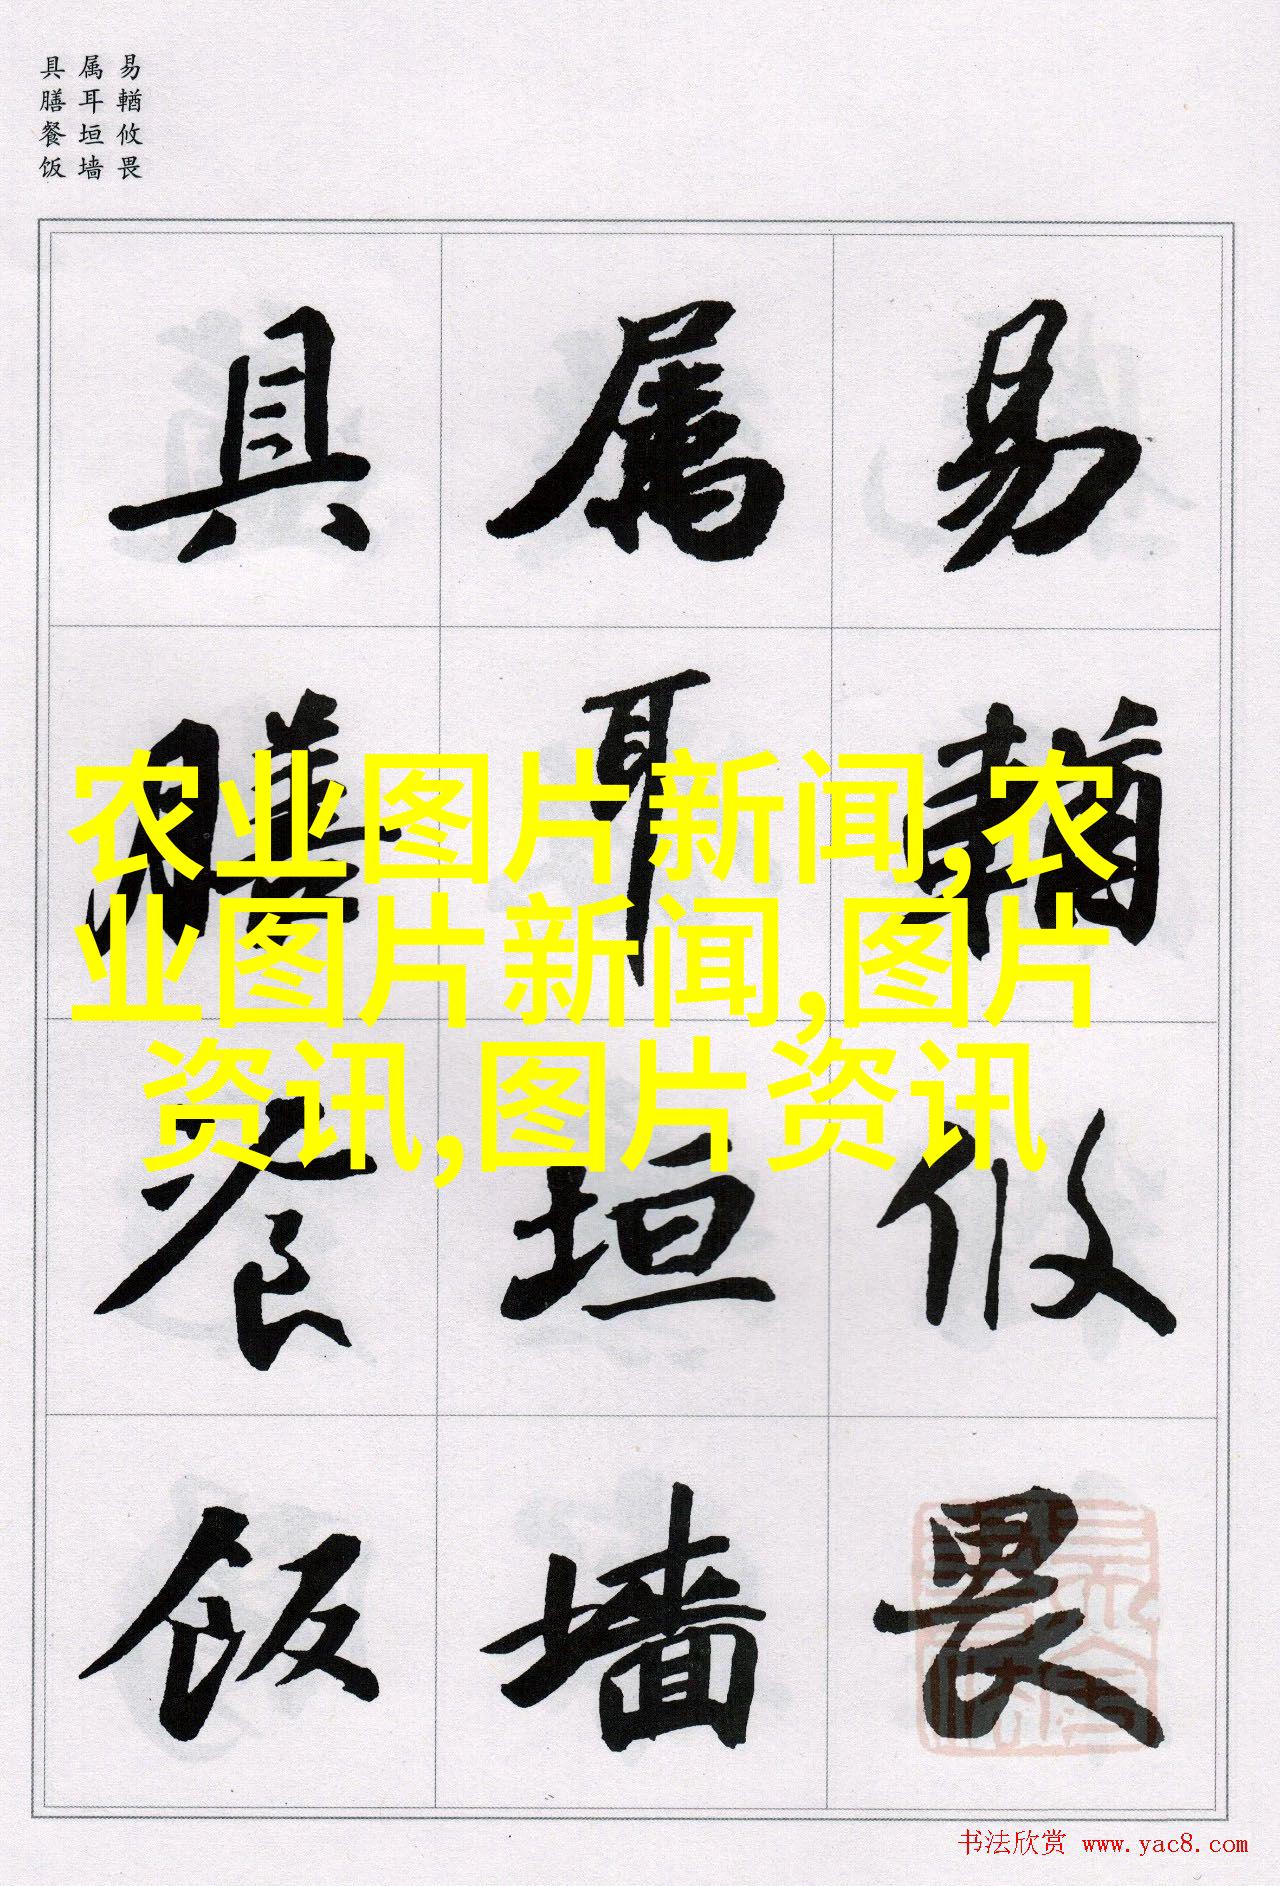 易輶攸畏
属耳垣墙
具膳餐饭
易輶攸畏
属耳垣墙
具膳餐饭
农业图片新闻,农
业图片新闻,图片
资讯,图片资讯
书法欣赏 www.yac8.com